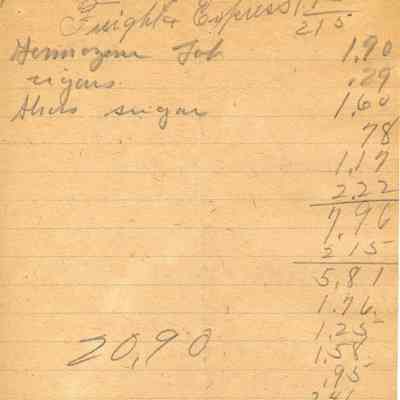 Freight & Express 1.
215
Job 1.90
cigars .29
sugar 1.60
78
1.17
2.22
7.96
215
5.81
1.76
1.25
20.90
1.58
.95
2.41